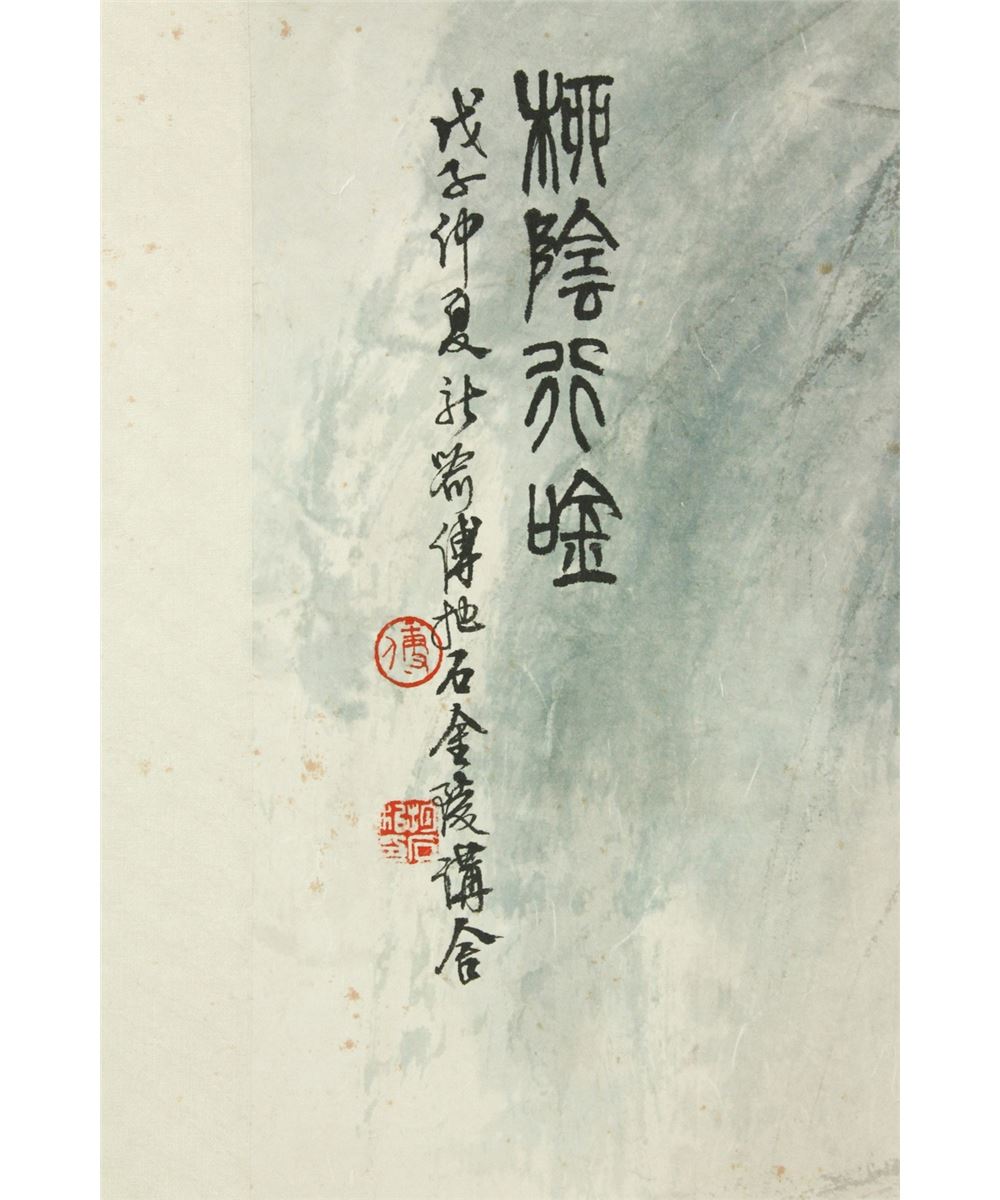 柳陰行唫
戊子仲夏新喻傅抱石金陵講舍
傅
抱石